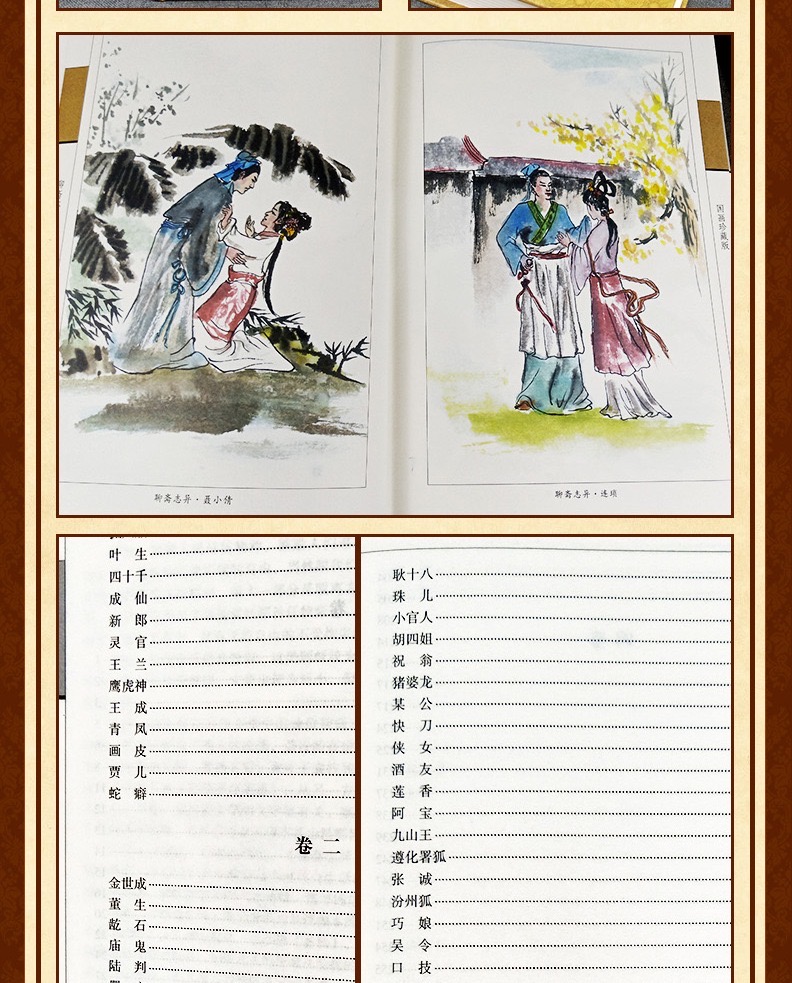 国画珍藏版
聊斋志异·聂小倩
聊斋志异·连琐
叶 生
四十千
成 仙
新 郎
灵 官
王 兰
鹰虎神
王 成
青 凤
画 皮
贾 儿
蛇 癖
卷 二
金世成
董 生
龁 石
庙 鬼
陆 判
耿十八
珠 儿
小官人
胡四姐
祝 翁
猪婆龙
某 公
快 刀
侠 女
酒 友
莲 香
阿 宝
九山王
遵化署狐
张 诚
汾州狐
巧 娘
吴 令
口 技